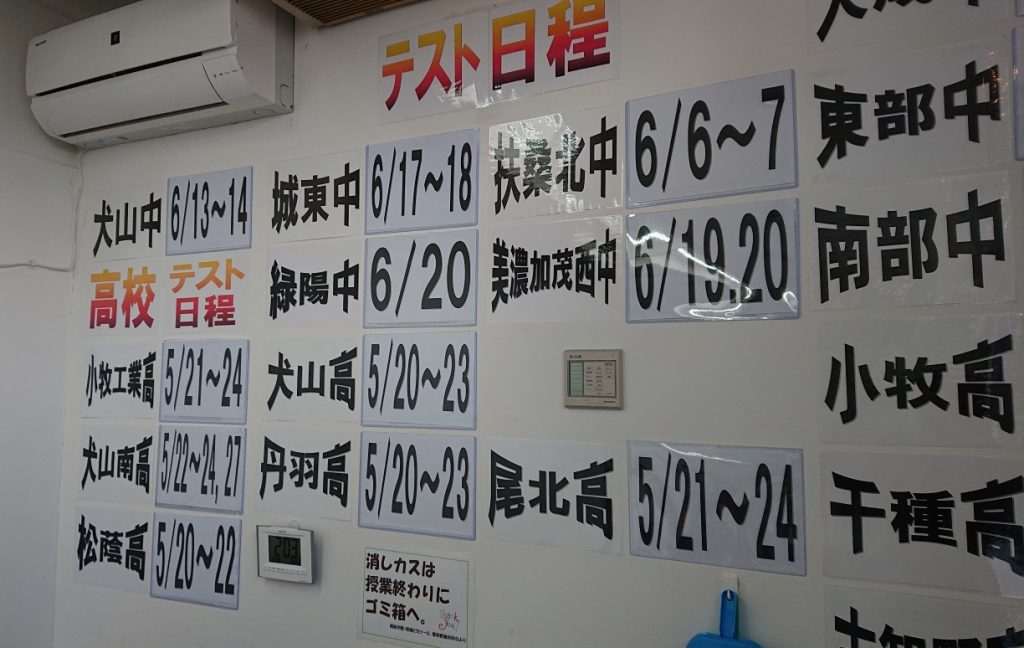 テスト日程
犬山中 6/13~14
城東中 6/17~18
扶桑北中 6/6~7
東部中
高校 テスト
日程
緑陽中 6/20
美濃加茂西中 6/19.20
南部中
小牧工業高 5/21~24
犬山高 5/20~23
小牧高
犬山南高 5/22~24,27
丹羽高 5/20~23
尾北高 5/21~24
千種高
松蔭高 5/20~22
消しカスは
授業終わりに
ゴミ箱へ。
Thank
you!